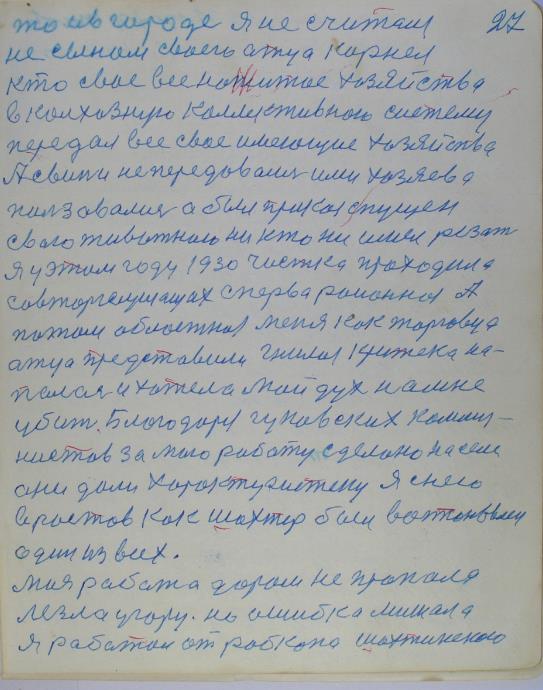 то ив городе я не считал 27
не сыном своего атца Корнея
Кто свое все нажитое хозяйства
в колхозную коллективною систему
передал все свое имеющие хозяйства
А свини непередовали ими хозяева
ползовалия а был приказ спущен
сваго животного ни кто ни имел резат
Я у этом году 1930 чистка проходила
сперва районная А
потом областная меня как торговца
атца представили гнилая критека на-
палоя и хотела мой дух намне
убит. Благодоря гуковских комму-
нистов за мою работу сделано насели
они дали характиристеку Я снею
в ростов как шахтер был
один из всех.
моя работа даром не пропала
лезла угору. но ошибка мишала
Я работал от рабкопа шахтинского